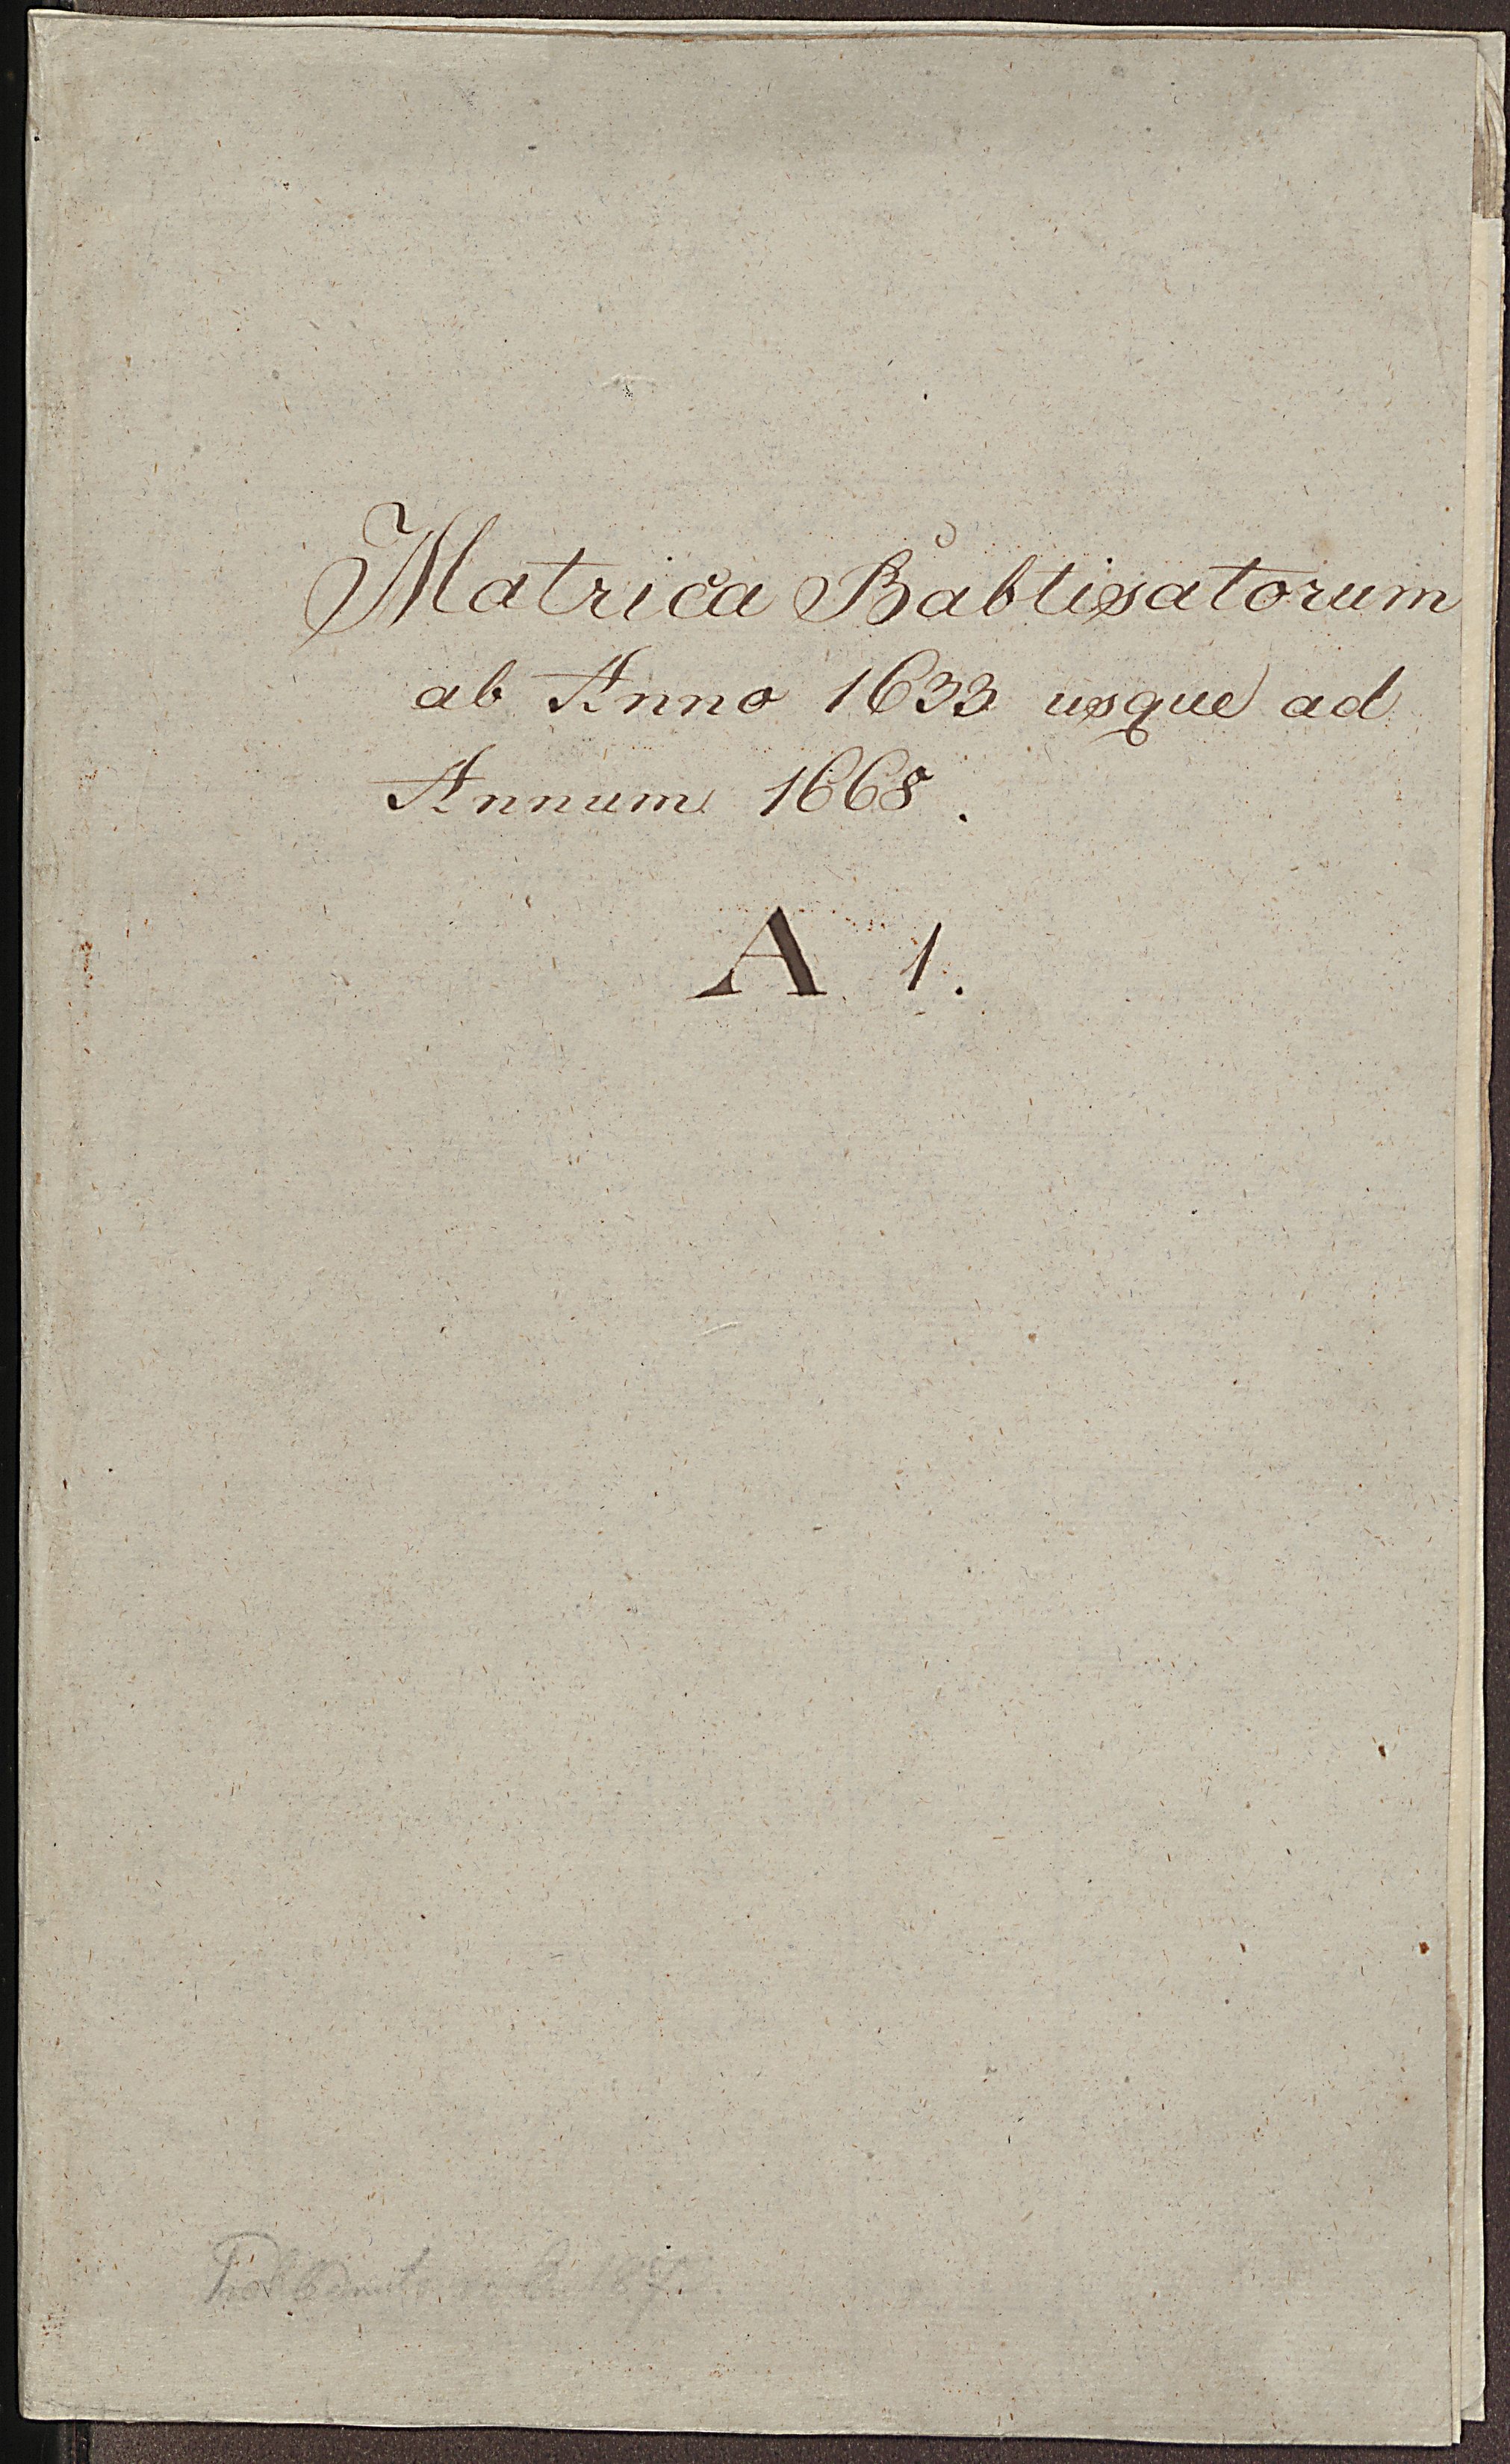 Matrica Babtisatorum
ab Anno 1633 usque ad
Annum 1668.
A 1.